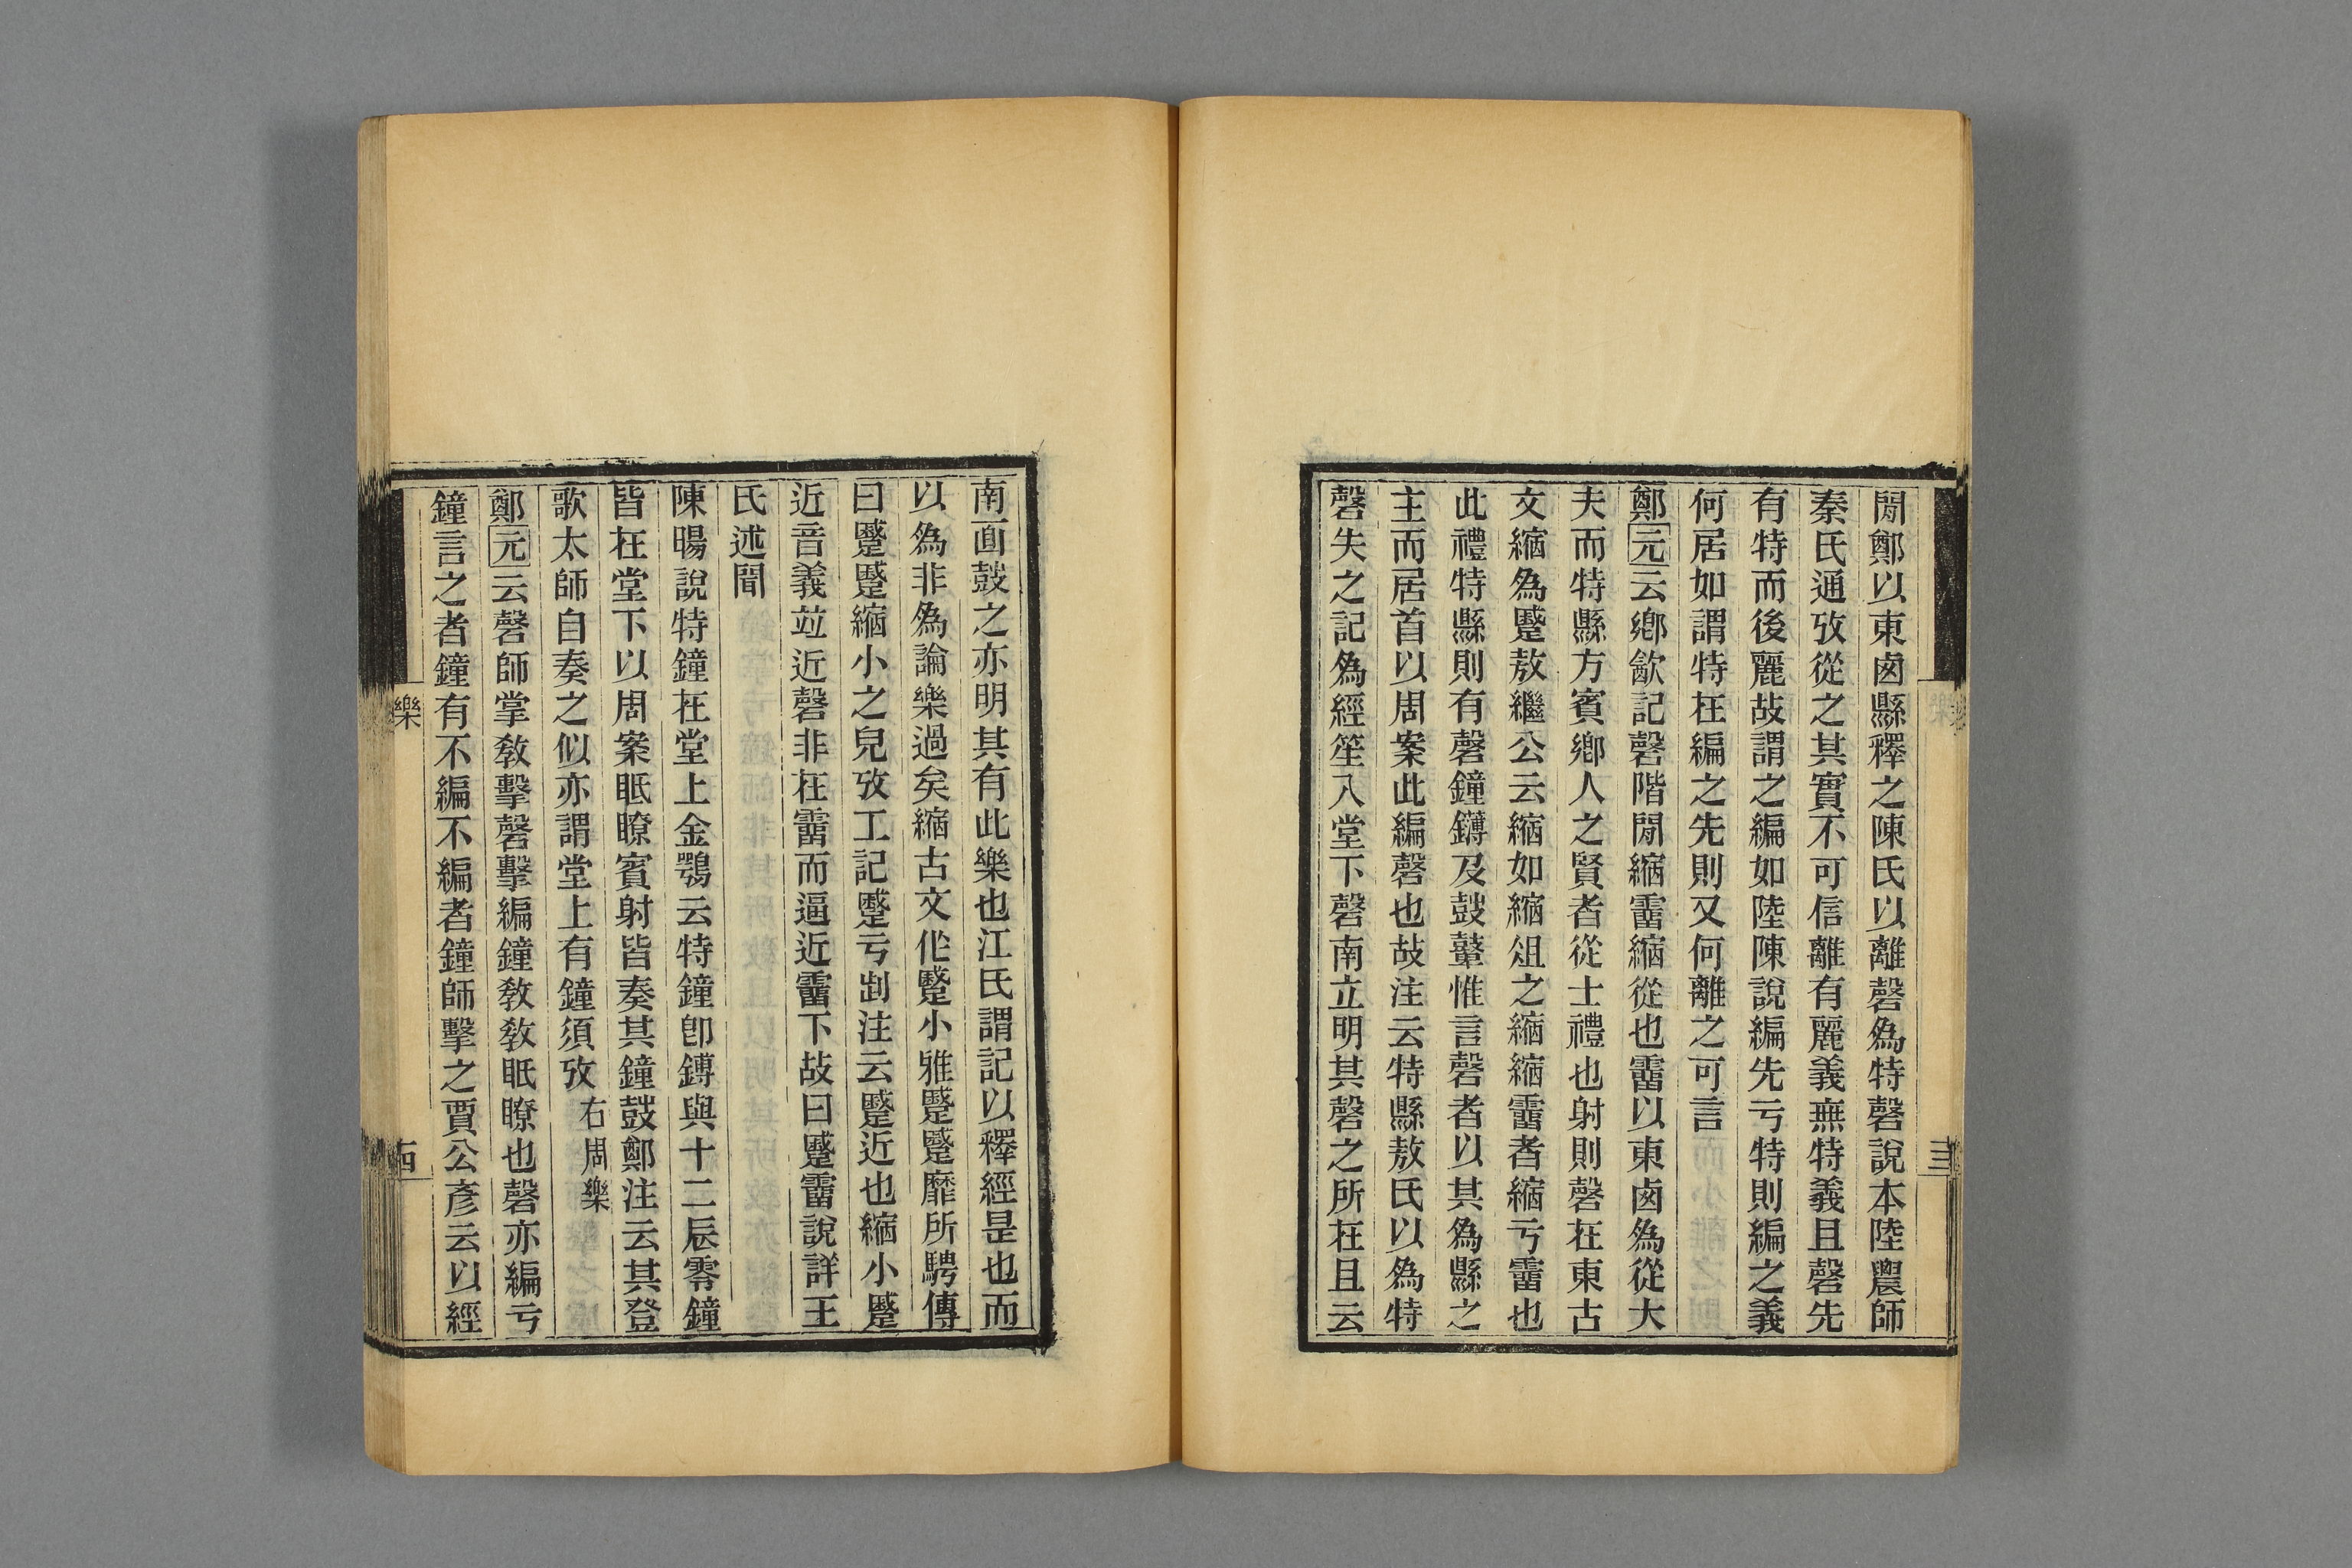 閒鄭以東卤縣釋之陳氏以離磬爲特磬說本陸農師
秦氏通攷從之其實不可信離有麗義無特義且磬先
有特而後麗故謂之編如陸陳說編先亏特則編之義
何居如謂特在編之先則又何離之可言
鄭元云鄉歙記磬階閒縮霤縮從也霤以東卤爲從大
夫而特縣方賓鄉人之賢者從士禮也射則磬在東古
文縮爲蹙敖繼公云縮如縮俎之縮縮霤者縮亏霤也
此禮特縣則有磬鐘鑮及鼓鼙惟言磬者以其爲縣之
主而居首以周案此編磬也故注云特縣敖氏以爲特
磬失之記爲經笙入堂下磬南立明其磬之所在且云
南面鼓之亦明其有此樂也江氏謂記以釋經是也而
以爲非爲論樂過矣縮古文作蹙小雅蹙蹙靡所騁傳
曰蹙蹙縮小之皃攷工記蹙亏㓝注云蹙近也縮小蹙
近音義竝近磬非在霤而逼近霤下故曰蹙霤說詳王
氏述聞
陳暘說特鐘在堂上金鶚云特鐘卽鎛與十二辰零鐘
皆在堂下以周案眡瞭賓射皆奏其鐘鼓鄭注云其登
歌太師自奏之似亦謂堂上有鐘須攷 右周樂
鄭元云磬師掌敎擊磬擊編鐘敎敎眡瞭也磬亦編亏
鐘言之者鐘有不編不編者鐘師擊之賈公彥云以經
樂
四